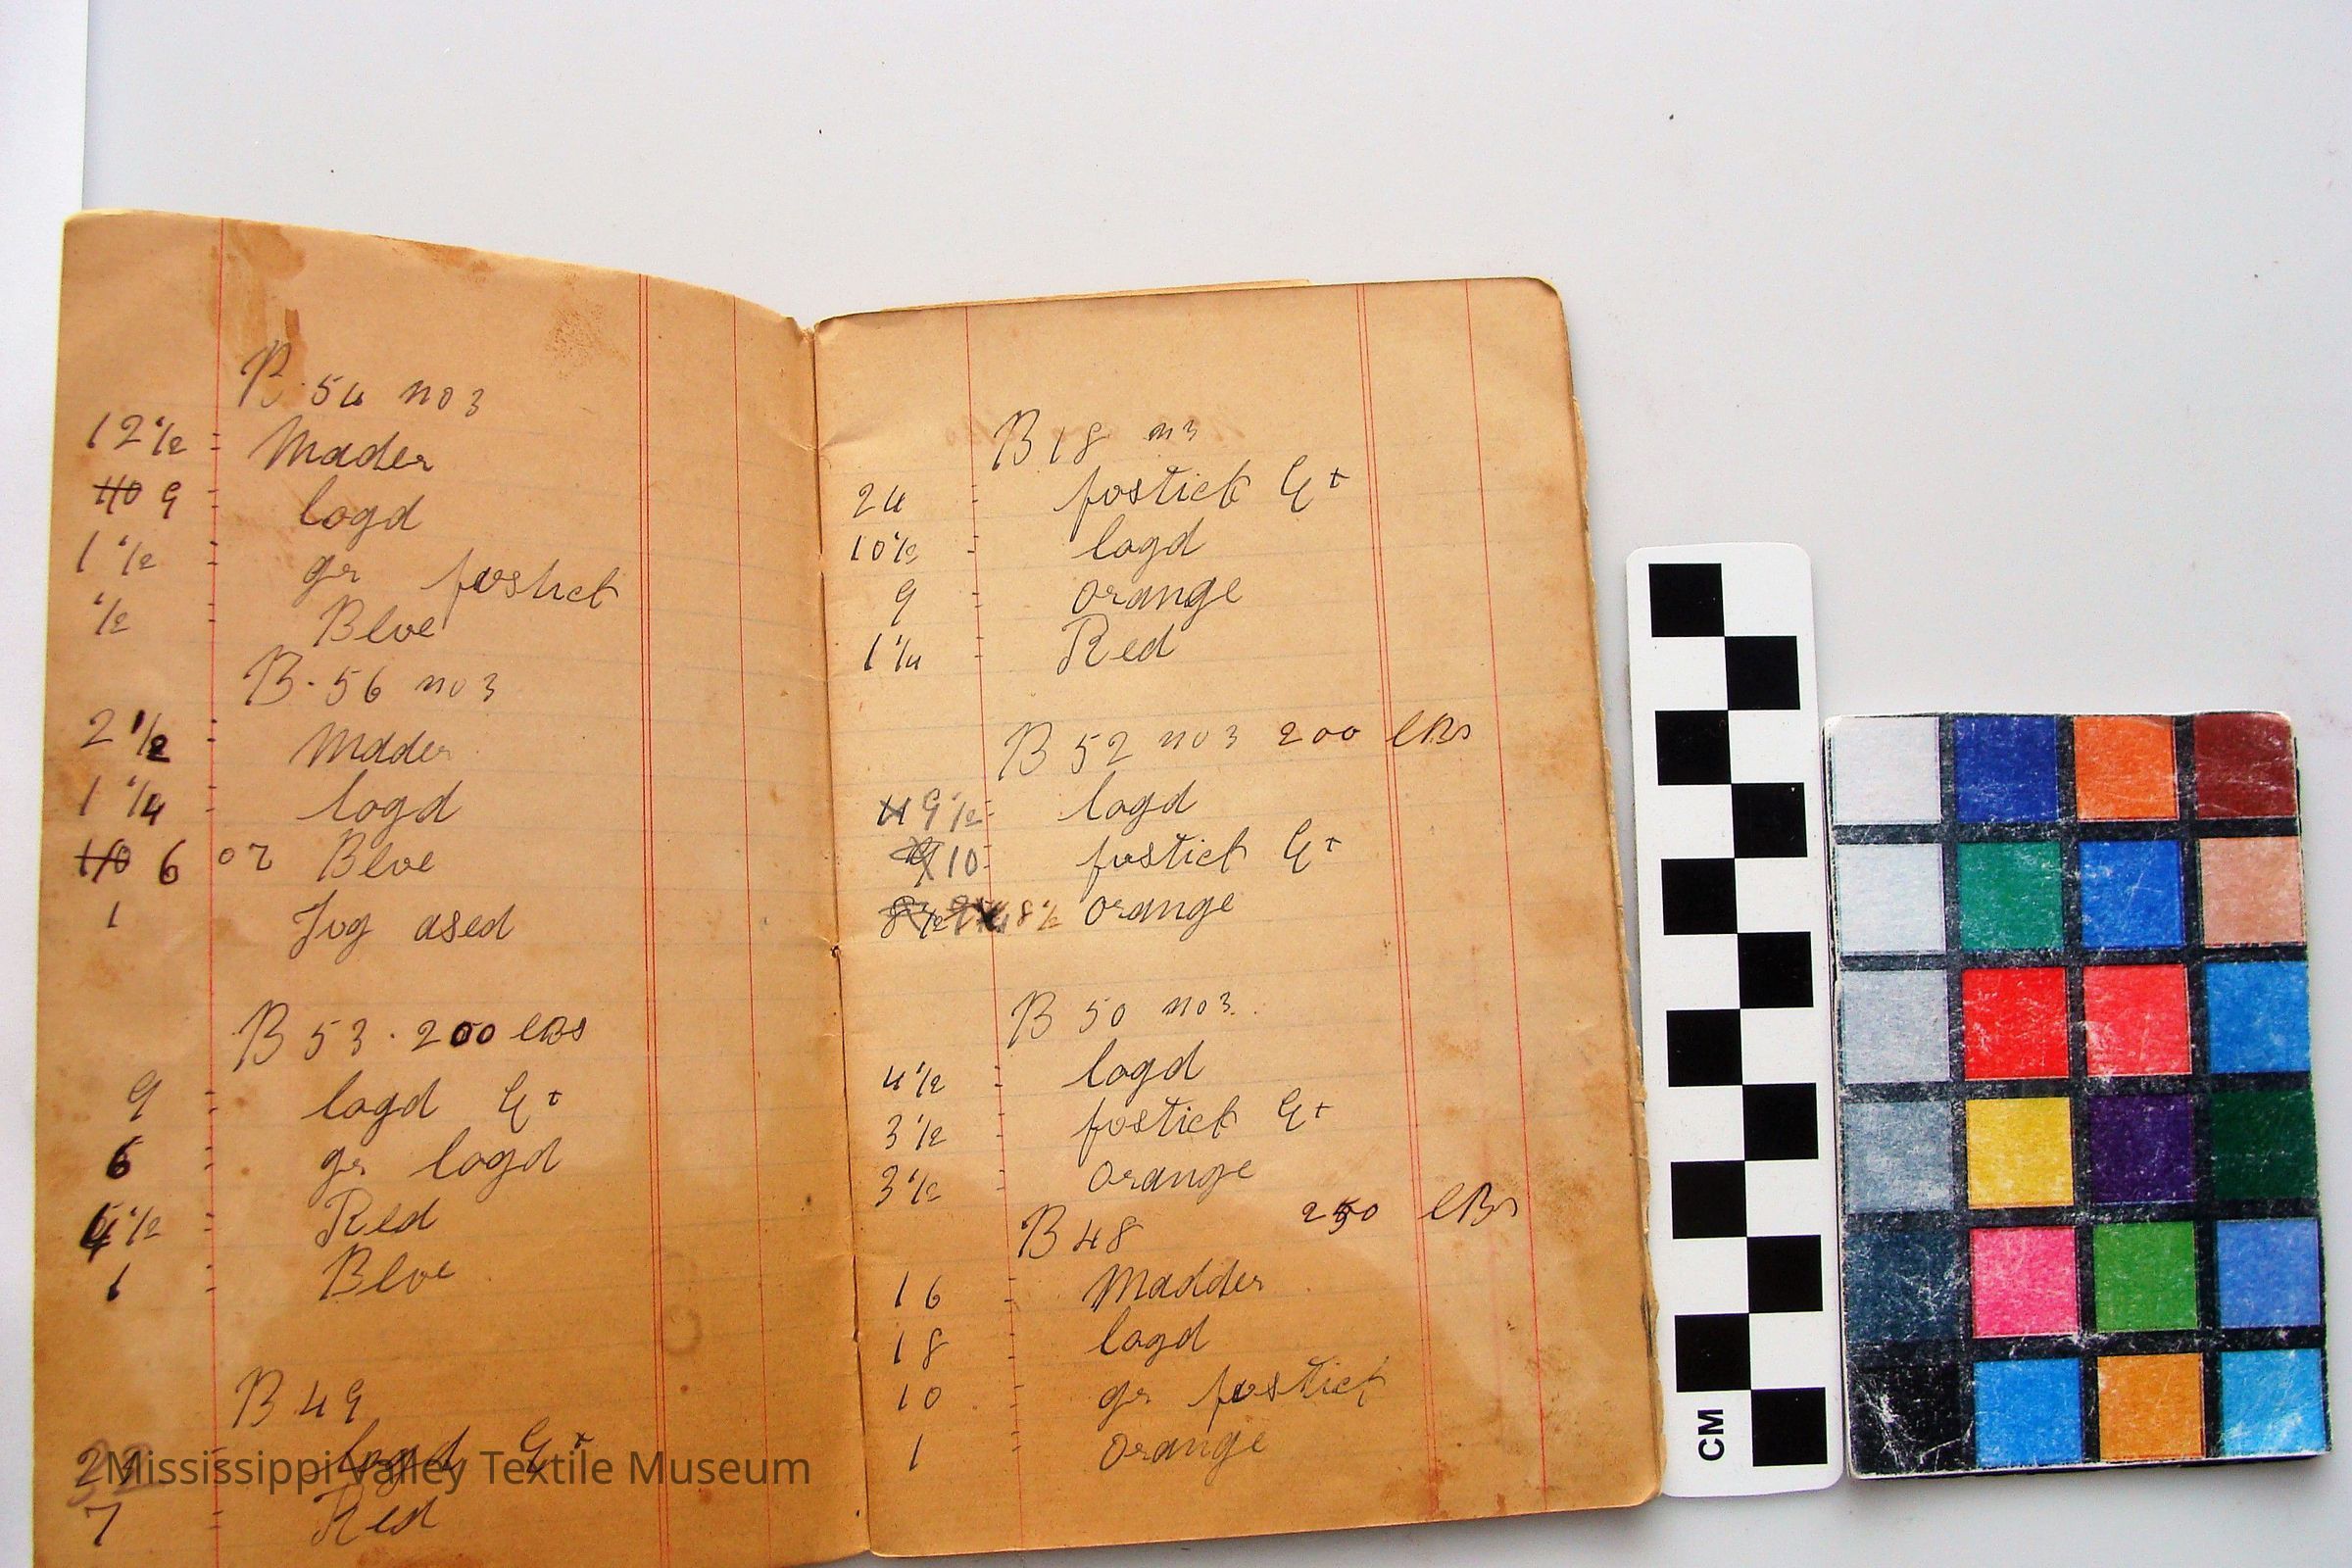 B. 54 no 3
12 1/2 = Mader
9 = logd
1 1/2 = gr fustick
1/2 = Blue
B. 56 no 3
2 1/2 = Mader
1 1/4 = logd
6 oz Blue
1 Jug ased
B 53. 200 lBs
9 = logd Ext
6 = gr logd
1/2 = Red
1 = Blue
B 49
logd Ext
7 = Red
B 18 n 3
24 = fustick Ext
10 1/2 = logd
9 = orange
1 1/4 = Red
B 52 no 3 200 lBs
9 1/2 = logd
10 = fustick Ext
8 1/2 orange
B 50 no 3.
4 1/2 = logd
3 1/2 = fostick Ext
3 1/2 = orange
B 48 250 lBs
16 = Madder
18 = logd
10 = gr fustick
1 = orange
Mississippi Valley Textile Museum
CM